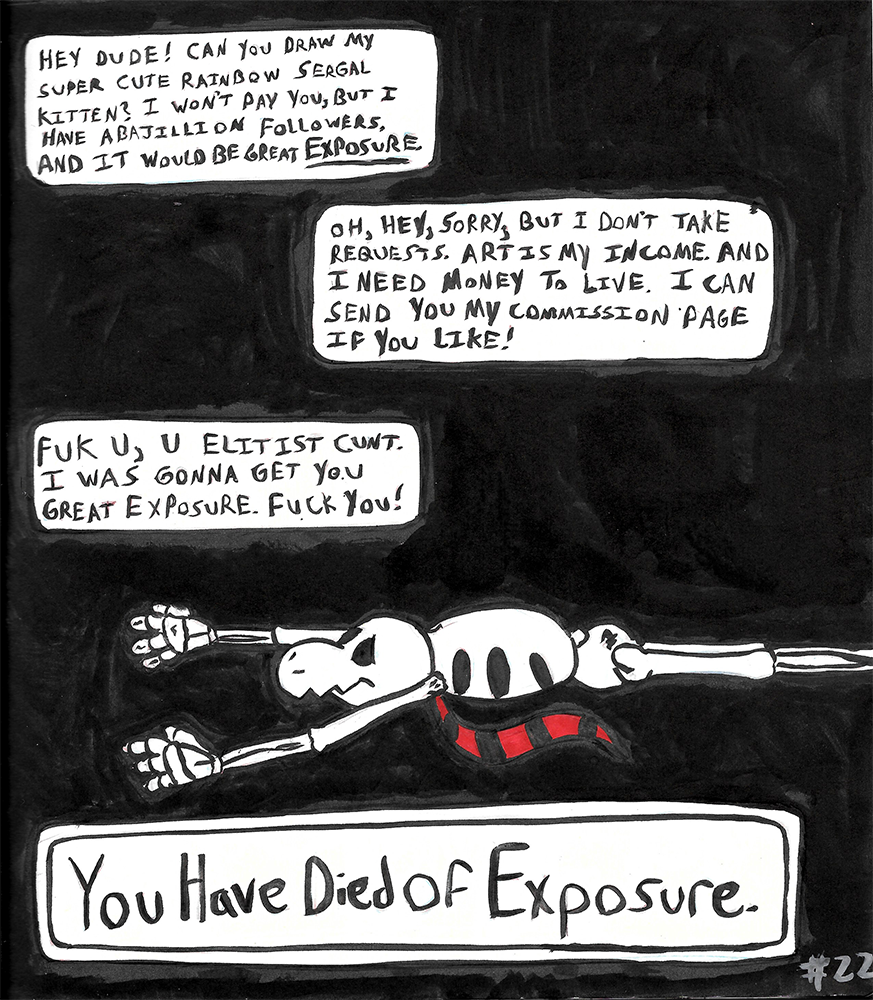 HEY DUDE! CAN YOU DRAW MY
SUPER CUTE RAINBOW SERGAL
KITTEN? I WON'T PAY YOU, BUT I
HAVE ABAJILLION FOLLOWERS,
AND IT WOULD BE GREAT EXPOSURE.
OH, HEY, SORRY, BUT I DON'T TAKE
REQUESTS. ART IS MY INCOME. AND
I NEED MONEY TO LIVE. I CAN
SEND YOU MY COMMISSION PAGE
IF YOU LIKE!
FUK U, U ELITIST CUNT.
I WAS GONNA GET YOU
GREAT EXPOSURE. FUCK YOU!
You Have Died of Exposure.
#22